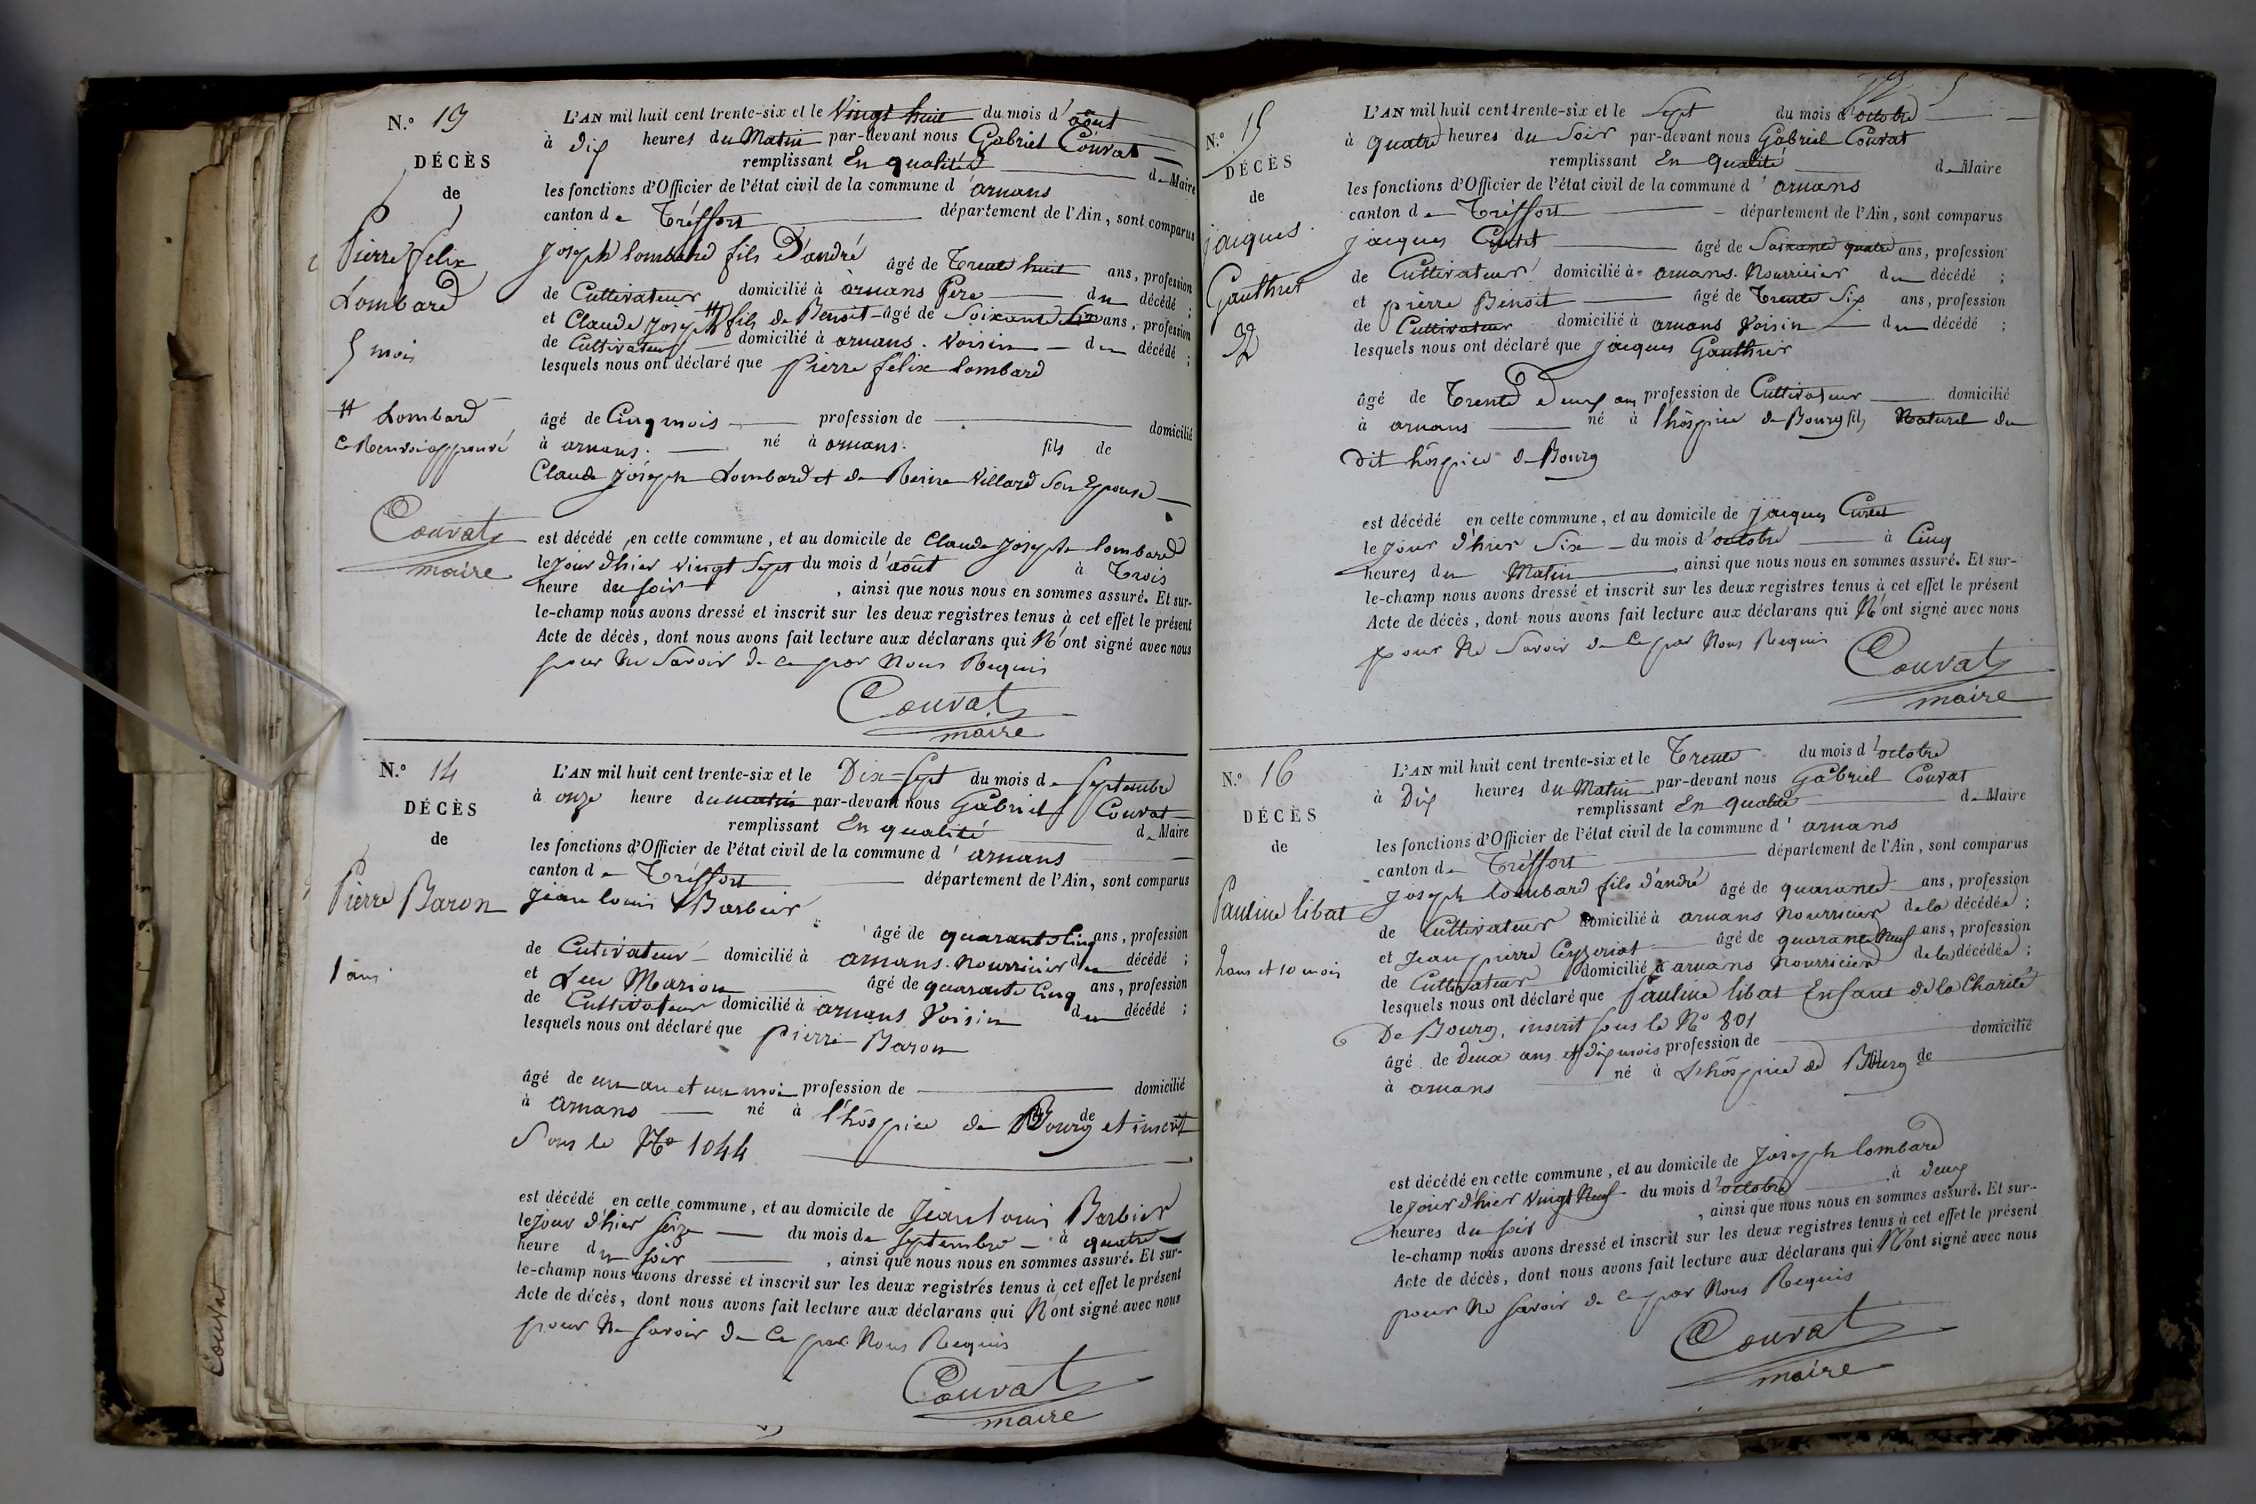 N.º 13
DÉCÈS
de
Pierre félix
Lombard
5 mois
# Lombard
Ce Renvoi approuvé
Couvat
maire
L'AN mil huit cent trente-six et le Vingt huit du mois d'août
à Dix heures du Matin par-devant nous Gabriel Couvat
remplissant En qualité de Maire
les fonctions d'Officier de l'état civil de la commune d'arnans
canton de Tréffort département de l'Ain, sont comparus
Joseph lombard fils D'andré âgé de Trente huit ans, profession
de Cultivateur domicilié à arnans Père du décédé ;
et Claude Joseph # fils de Benoit âgé de Soixante ans, profession
de Cultivateur domicilié à arnans. Voisin du décédé ;
lesquels nous ont déclaré que Pierre félix lombard
âgé de Cinq mois profession de domicilié
à arnans. né à arnans. fils de
Claude Joseph Lombard et de Reine Villard Son Epouse
est décédé en cette commune, et au domicile de Claude Joseph lombard
le Jour d'hier vingt Sept du mois d'août à Trois
heure du soir , ainsi que nous nous en sommes assuré. Et sur-
le-champ nous avons dressé et inscrit sur les deux registres tenus à cet effet le présent
Acte de décès, dont nous avons fait lecture aux déclarans qui N'ont signé avec nous
pour Ne Savoir de ce par Nous Requis
Couvat
maire
N.º 14
DÉCÈS
de
Pierre Baron
1 an
L'AN mil huit cent trente-six et le Dix-Sept du mois de Septembre
à onze heure du matin par-devant nous Gabriel Couvat
remplissant En qualité de Maire
les fonctions d'Officier de l'état civil de la commune d'arnans
canton de Tréffort département de l'Ain, sont comparus
Jean louis Barbier
âgé de quarante Cinq ans, profession
de Cutivateur domicilié à arnans. nourricier du décédé ;
et Luc Marion âgé de quarante Cinq ans, profession
de Cultivateur domicilié à arnans Voisin du décédé ;
lesquels nous ont déclaré que pierre Baron
âgé de un an et un moi profession de domicilié
à arnans né à l'hôspice de Bourg et inscrit
Sous le No 1044
est décédé en cette commune, et au domicile de Jean louis Barbier
le Jour d'hier Seize du mois de Septembre à quatre
heure du soir , ainsi que nous nous en sommes assuré. Et sur-
le-champ nous avons dressé et inscrit sur les deux registres tenus à cet effet le présent
Acte de décès, dont nous avons fait lecture aux déclarans qui N'ont signé avec nous
pour Ne savoir de Ce par Nous Requis
Couvat
maire
Couvat
N.º 15
DÉCÈS
de
jacques
Gauthier
32
L'AN mil huit cent trente-six et le Sept du mois d'octobre
à quatre heures du Soir par-devant nous Gabriel Couvat
remplissant En qualité de Maire
les fonctions d'Officier de l'état civil de la commune d'arnans
canton de Tréffort département de l'Ain, sont comparus
jacques Curtet âgé de Soixante quatre ans, profession
de Cultivateur domicilié à arnans. Nourricier du décédé ;
et pierre Benoit âgé de Trente Six ans, profession
de Cultivateur domicilié à arnans Voisin du décédé ;
lesquels nous ont déclaré que Jacques Gauthier
âgé de Trente Deux ans profession de Cultivateur domicilié
à arnans né à l'hôspice de Bourg fils Naturel du
Dit hôspice de Bourg
est décédé en cette commune, et au domicile de jacques Curtet
le Jour d'hier Six du mois d'octobre à Cinq
heures du Matin , ainsi que nous nous en sommes assuré. Et sur-
le-champ nous avons dressé et inscrit sur les deux registres tenus à cet effet le présent
Acte de décès, dont nous avons fait lecture aux déclarans qui N'ont signé avec nous
pour Ne Savoir de Ce par Nous Requis
Couvat
maire
N.º 16
DÉCÈS
de
Pauline libat
2 ans et 10 mois
L'AN mil huit cent trente-six et le Trente du mois d'octobre
à Dix heures du Matin par-devant nous Gabriel Couvat
remplissant En qualité de Maire
les fonctions d'Officier de l'état civil de la commune d'arnans
canton de Tréffort département de l'Ain, sont comparus
Joseph lombard fils d'andré âgé de quarante ans, profession
de Cultivateur domicilié à arnans nourricier de la décédée ;
et Jean pierre Ceyzeriat âgé de quarante Neuf ans, profession
de Cultivateur domicilié à arnans Nourricier de la décédée ;
lesquels nous ont déclaré que Pauline libat Enfant de la Charité
De Bourg, inscrit sous le No 801
âgé de Deux ans et dix mois profession de domicilié
à arnans né à L'hôspice de Bourg de
est décédé en cette commune, et au domicile de Joseph lombard
le Jour d'hier vingt Neuf du mois d'octobre à deux
heures du soir , ainsi que nous nous en sommes assuré. Et sur-
le-champ nous avons dressé et inscrit sur les deux registres tenus à cet effet le présent
Acte de décès, dont nous avons fait lecture aux déclarans qui N'ont signé avec nous
pour Ne savoir de Ce par Nous Requis
Couvat
maire